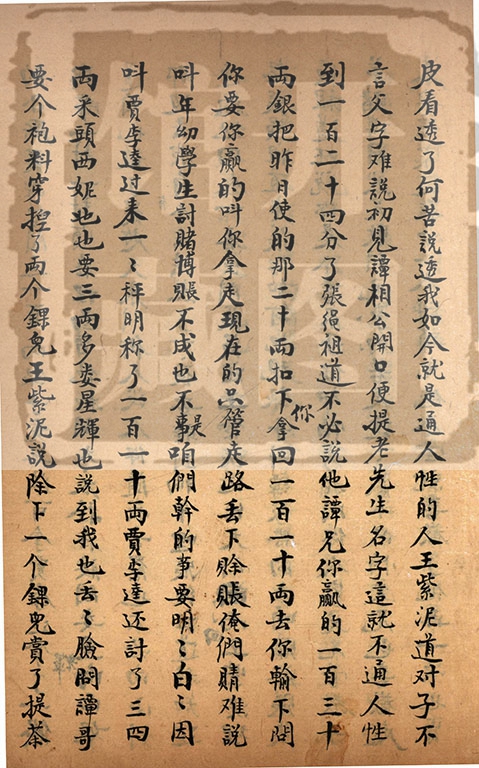 皮看透了何苦說透我如今就是通人性的人王紫泥道对子不
言父字难說初見譚相公開口便提老先生名字這就不通人性
到一百二十四分了張䋲祖道不必說他譚兄你贏的一百三十
兩銀把昨日使的那二十兩扣下拿回一百一十兩去你輸下問
你
你要你贏的叫你拿走現在的只管走路丢下賒賬俺們賭难說
叫年幼學生討賭博賬不成也不事咱們幹的事要明〻白〻因
是
叫賈李逵过来一〻秤明称了一百一十兩賈李逵还討了三四
兩采頭西妮也也要三兩多娄星輝也說到我也丢〻臉問譚哥
要个袍料穿捏了兩个錁兒王紫泥說除下一个錁兒賞了提茶